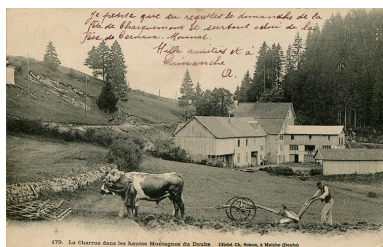 Je pense que tu regrettes le dimanche de la
fête de et surtout celui de la
fête de
Mille amitiés et à
Dimanche
A.
179. La Charrue dans les hautes Montagnes du Doubs Cliché Ch. Simon, à Maîche (Doubs)